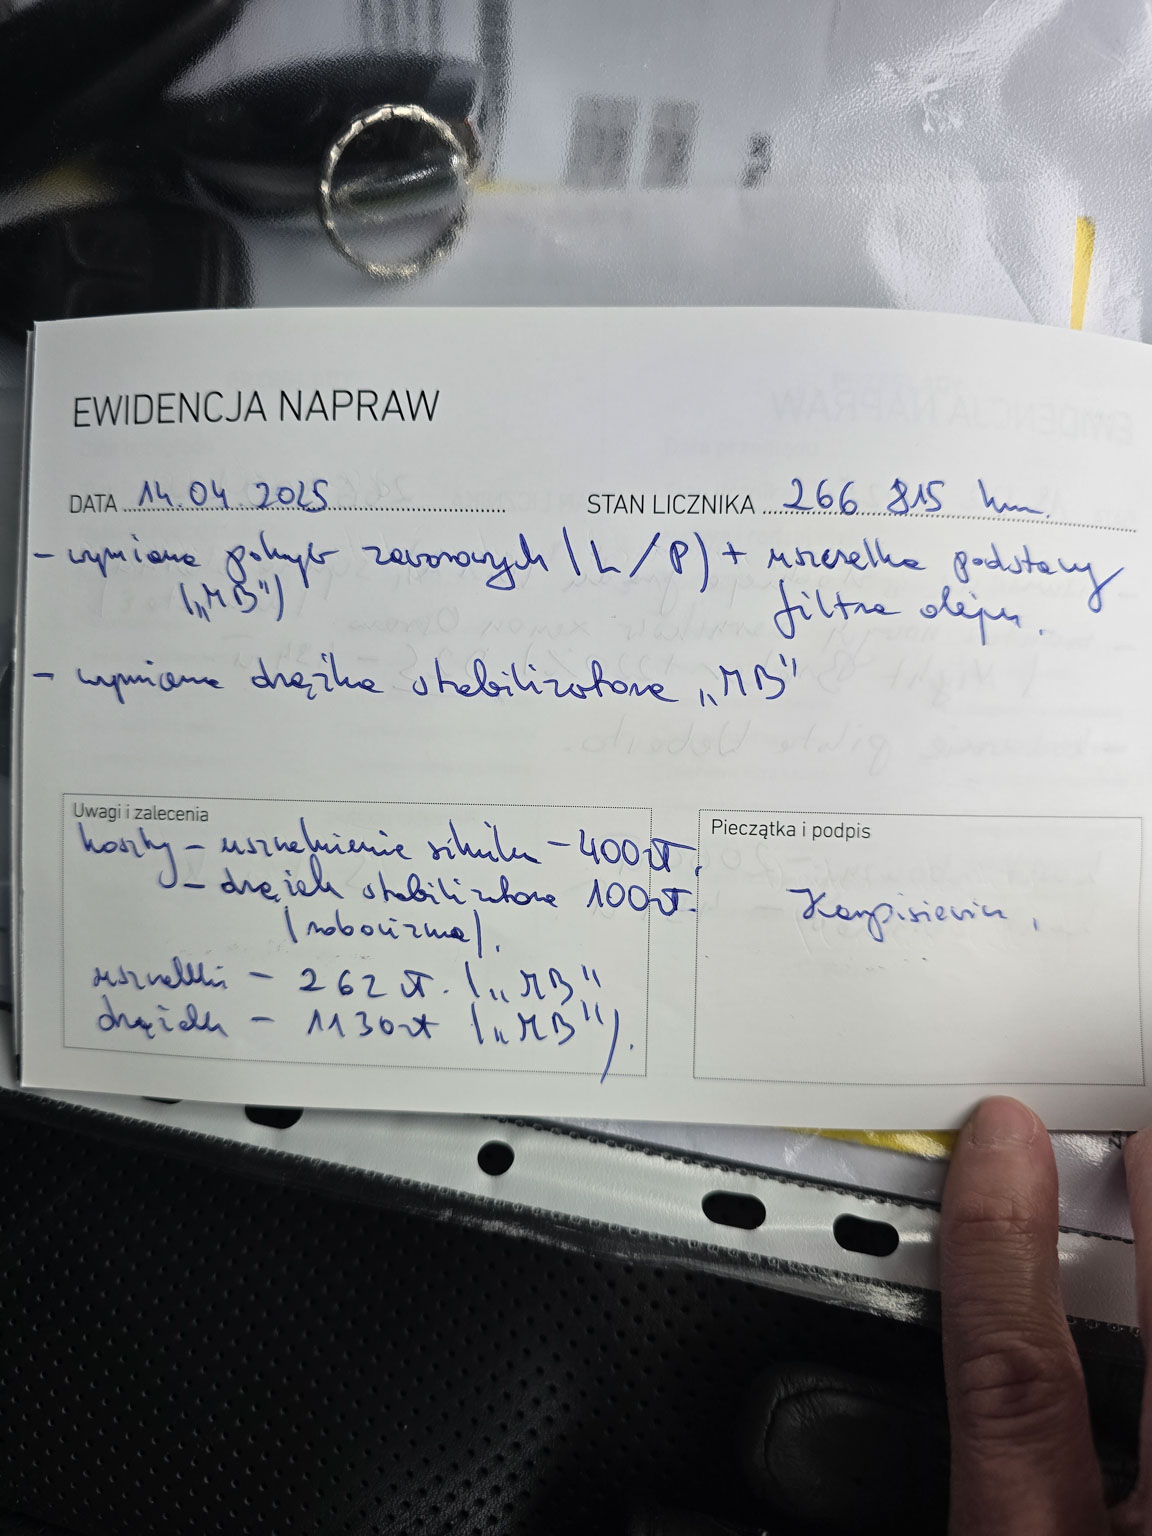 EWIDENCJA NAPRAW
DATA 14.04.2025 STAN LICZNIKA 266 815 km.
- wymiana pokryw zaworowych (L/P) + uszczelka podstawy
("MB") filtra oleju.
- wymiana drążka stabilizatora "MB"
Uwagi i zalecenia
koszty - uszczelnienie silnika - 400 zł.
- drążek stabilizatora 100 zł.
(robocizna).
uszczelki - 262 zł. ("MB"
drążek - 1130 zł ("MB").
Pieczątka i podpis